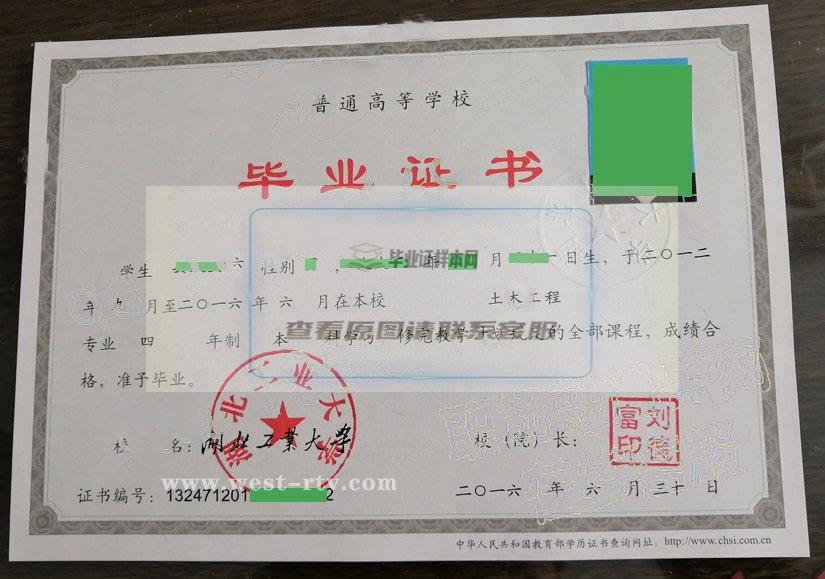 普通高等学校
毕业证书
毕业证样本网
学生 六 性别 , 年 月 一日生，于二〇一二
年九月至二〇一六年六月在本校 土木工程
查看原图请联系客服
专业 四 年制 本 科学习 修完教学 的全部课程，成绩合
格，准予毕业。
湖北工业大学
校 名：湖北工業大学
校（院）长：
刘德富印
www.west-rtv.com
证书编号：132471201 2
二〇一六年六月三十日
中华人民共和国教育部学历证书查询网址：http://www.chsi.com.cn